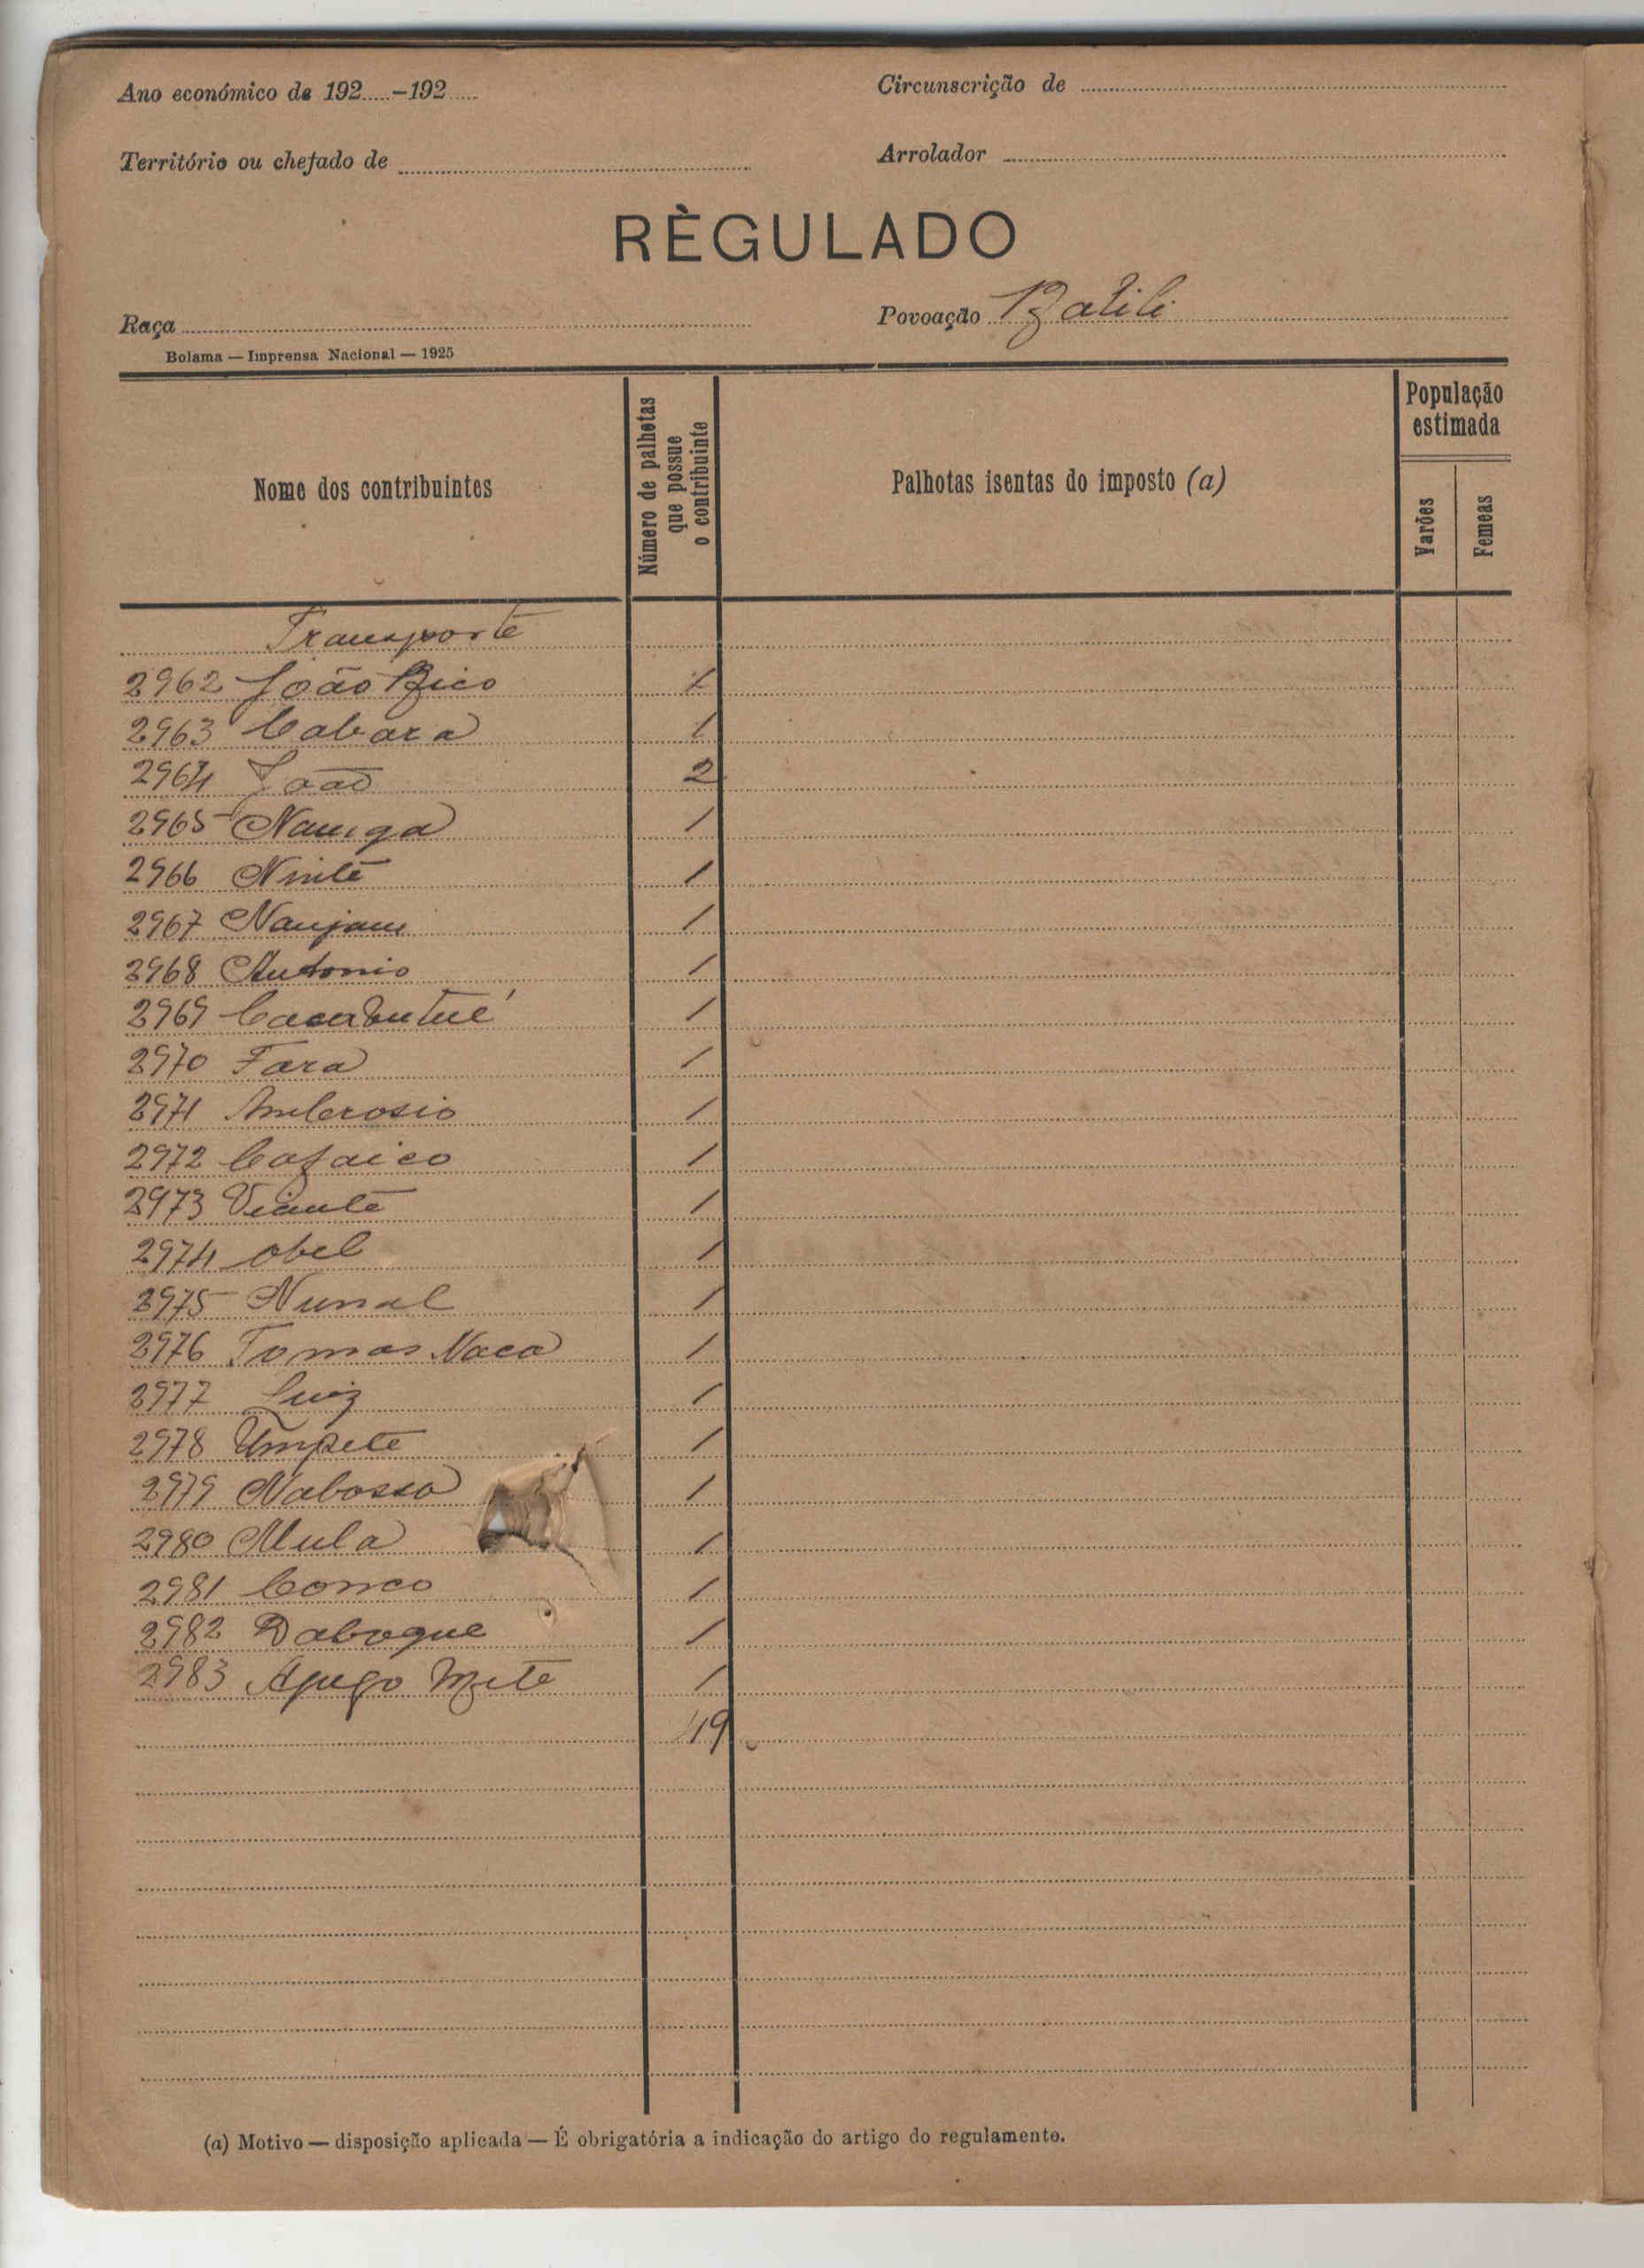 Ano económico de 192.....-192.....
Circunscrição de
Território ou chefado de
Arrolador
RÈGULADO
Raça
Povoação Batili
Bolama — Imprensa Nacional — 1925
Nome dos contribuintes
Número de palhotas que possue o contribuinte
Palhotas isentas do imposto (a)
População estimada
Varões
Femeas
Transporte
2962 João Bico 1
2963 Cabara 1
2964 João 2
2965 Naniga 1
2966 Ninte 1
2967 Nanjam 1
2968 Antonio 1
2969 1
2970 Fara 1
2971 Ambrosio 1
2972 Cafaico 1
2973 Vicente 1
2974 Abel 1
2975 Nunal 1
2976 Tomas Naca 1
2977 Luiz 1
2978 Umpete 1
2979 Nabossa 1
2980 Mula 1
2981 Conco 1
2982 Daboque 1
2983 1
(a) Motivo — disposição aplicada — É obrigatória a indicação do artigo do regulamento.